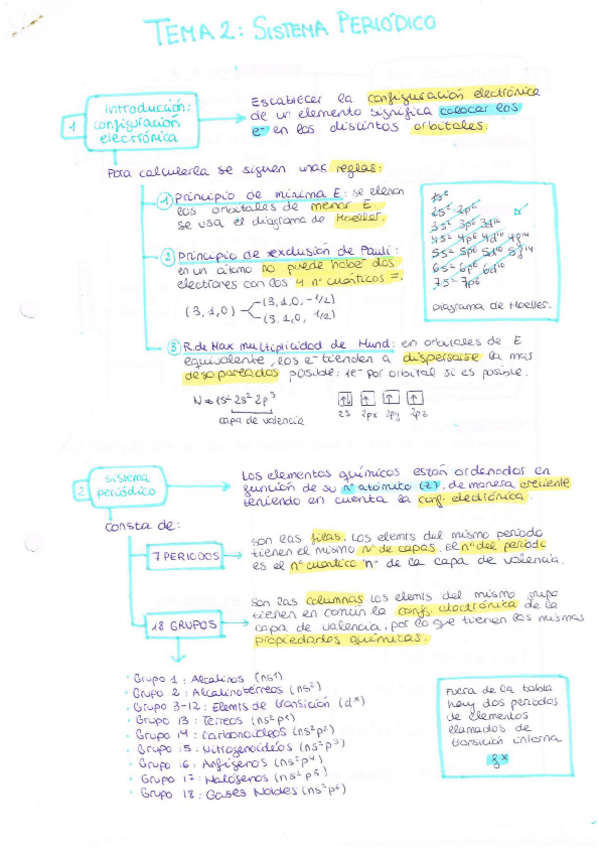 TEMA 2: SISTEMA PERIÓDICO
1
Introducción:
configuración
electrónica
Establecer la configuración electrónica
de un elemento significa colocar los
e⁻ en los distintos orbitales.
Para calcularla se siguen unas reglas:
① Principio de mínima E: se llenan
los orbitales de menor E.
se usa el diagrama de Moeller.
1s²
2s² 2p⁶
3s² 3p⁶ 3d¹⁰
4s² 4p⁶ 4d¹⁰ 4f¹⁴
5s² 5p⁶ 5d¹⁰ 5f¹⁴
6s² 6p⁶ 6d¹⁰
7s² 7p⁶
Diagrama de Moeller.
② Principio de exclusión de Pauli:
en un átomo no puede haber dos
electrones con los 4 nº cuánticos =.
(3,1,0)
(3,1,0,-1/2)
(3,1,0, 1/2)
③ R. de Max multiplicidad de Hund: en orbitales de E
equivalente, los e⁻ tienden a dispersarse lo mas
desapareados posible: 1e⁻ por orbital si es posible.
N → 1s² 2s² 2p³
capa de valencia
↑↓ ↑ ↑ ↑
2s 2px 2py 2pz
2
sistema
periódico
Los elementos químicos están ordenados en
función de su nº atómico (z), de manera creciente
teniendo en cuenta la conf. electrónica.
Consta de:
7 PERIODOS
son las filas. Los elemts del mismo periodo
tienen el mismo nº de capas. El nº del periodo
es el nº cuántico "n" de la capa de valencia.
18 GRUPOS
Son las columnas. Los elemts del mismo grupo
tienen en común la conf. electrónica de la
capa de valencia, por lo que tienen las mismas
propiedades químicas.
· Grupo 1: Alcalinos (ns¹)
· Grupo 2: Alcalinotérreos (ns²)
· Grupo 3-12: Elemts de transición (dˣ)
· Grupo 13: Térreos (ns²p¹)
· Grupo 14: Carbonoideos (ns²p²)
· Grupo 15: Nitrogenoideos (ns²p³)
· Grupo 16: Anfígenos (ns²p⁴)
· Grupo 17: Halógenos (ns²p⁵)
· Grupo 18: Gases Nobles (ns²p⁶)
Fuera de la tabla
hay dos periodos
de elementos
llamados de
transición interna
fˣ